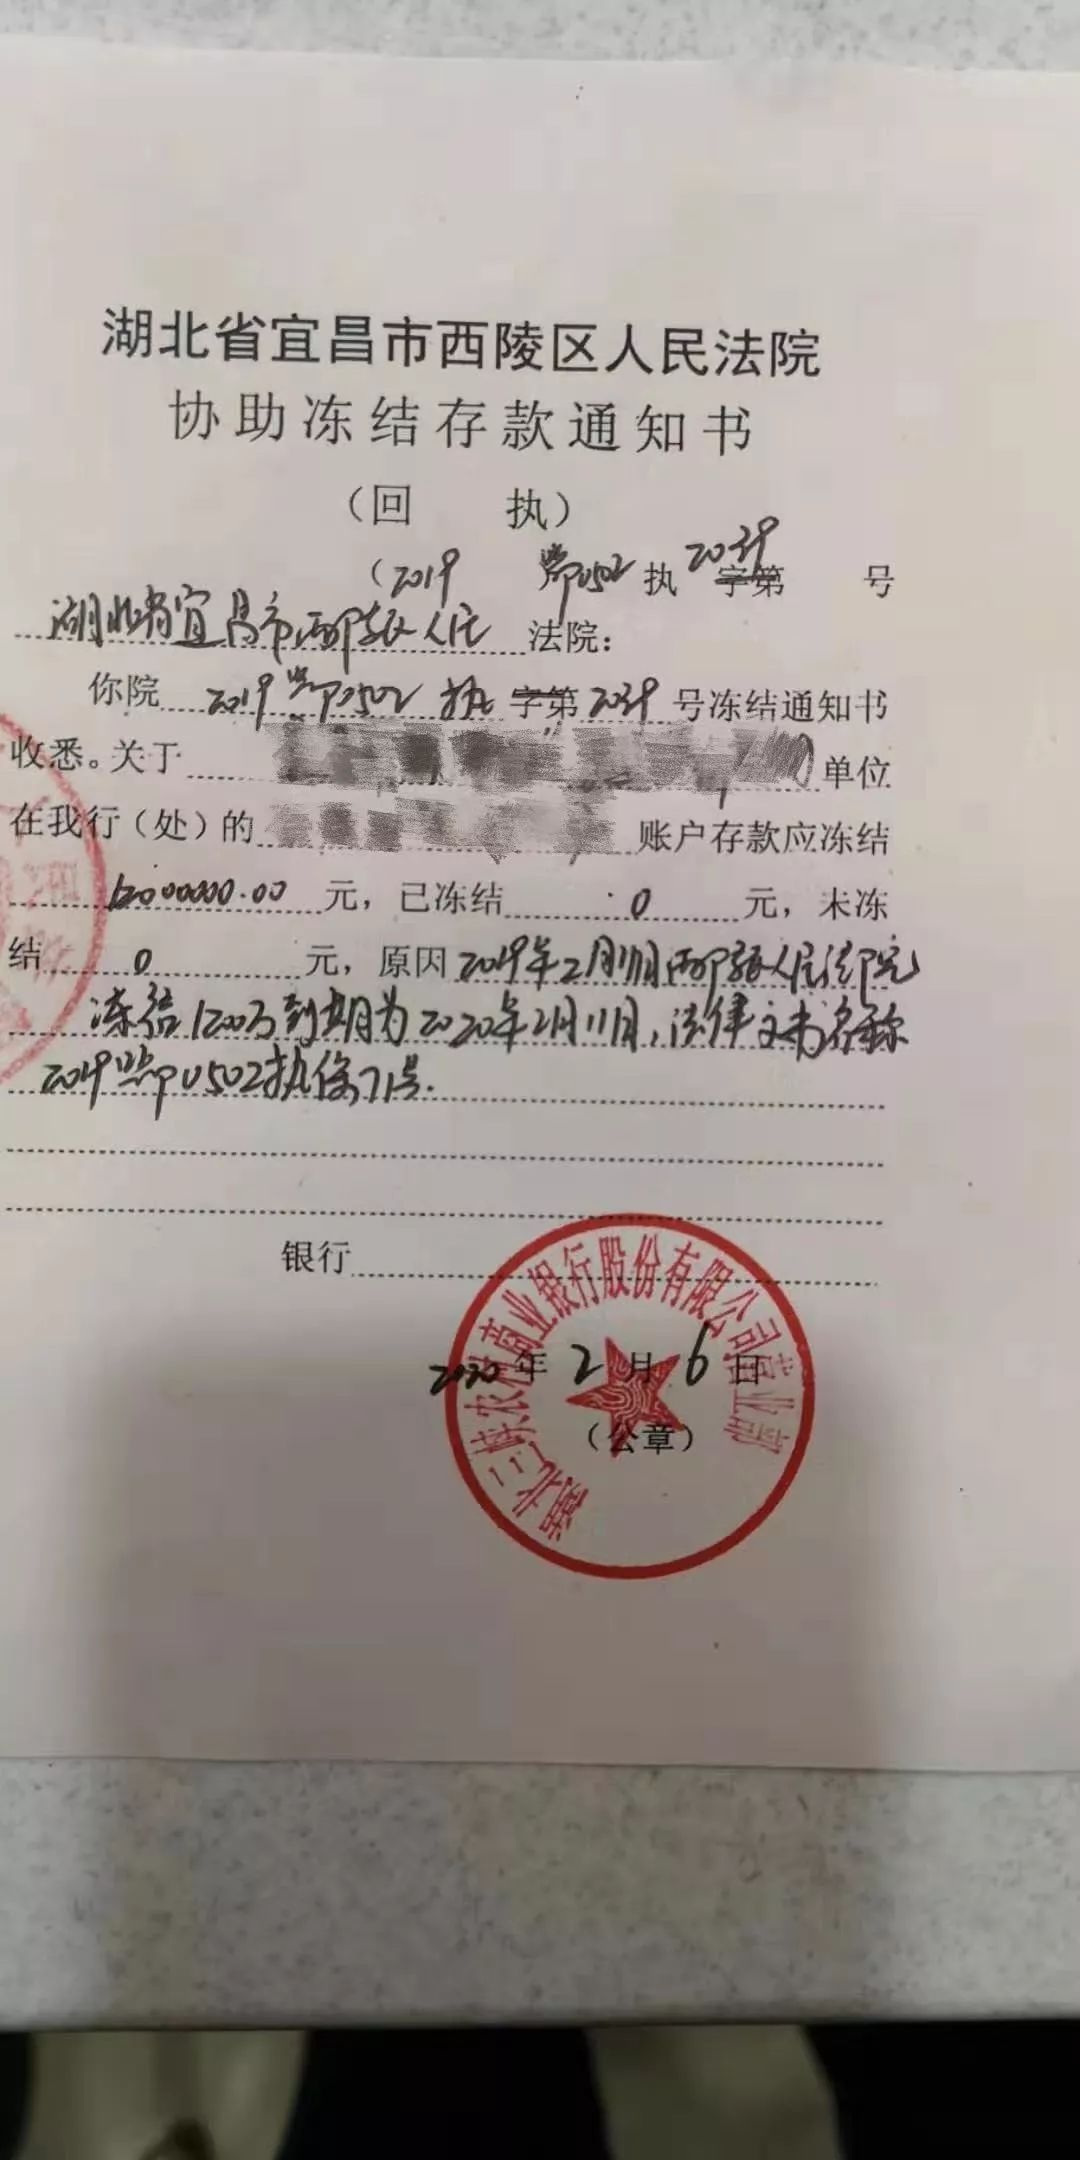 湖北省宜昌市西陵区人民法院
协助冻结存款通知书
（回 执）
（2019 鄂0502 执 2039 字第 号
湖北省宜昌市西陵区人民 法院：
你院 2019鄂0502 执 字第 2039 号冻结通知书
收悉。关于 单位
在我行（处）的 账户存款应冻结
元，已冻结 0 元，未冻
结 0 元，原因 2019年2月11日西陵区人民法院
冻结120万到期为2020年2月11日，法律文书名称
2019鄂0502执保71号.
银行
2020 年 2 月 6 日
（公章）
湖北三峡农村商业银行股份有限公司营业部